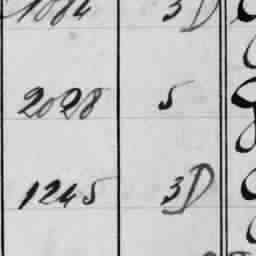 1084 3D
2028 5
1245 3D